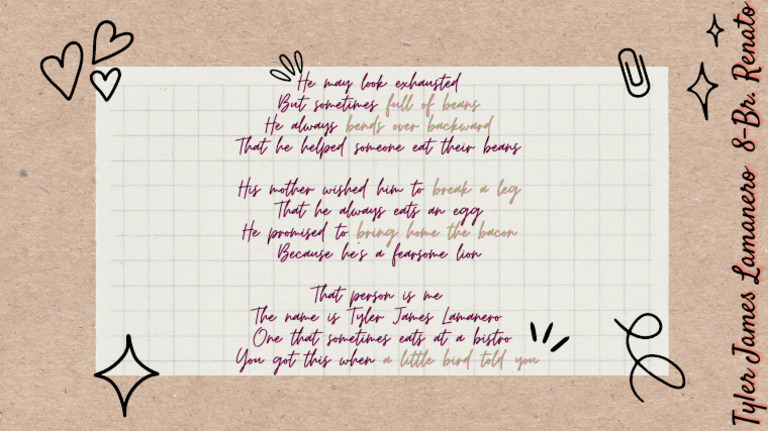 He may look exhausted
But sometimes full of beans
He always bends over backward
That he helped someone eat their beans
His mother wished him to break a leg
That he always eats an egg
He promised to bring home the bacon
Because he's a fearsome lion
That person is me
The name is Tyler James Lamanero
One that sometimes eats at a bistro
You got this when a little bird told you
Tyler James Lamanero 8-Br. Renato